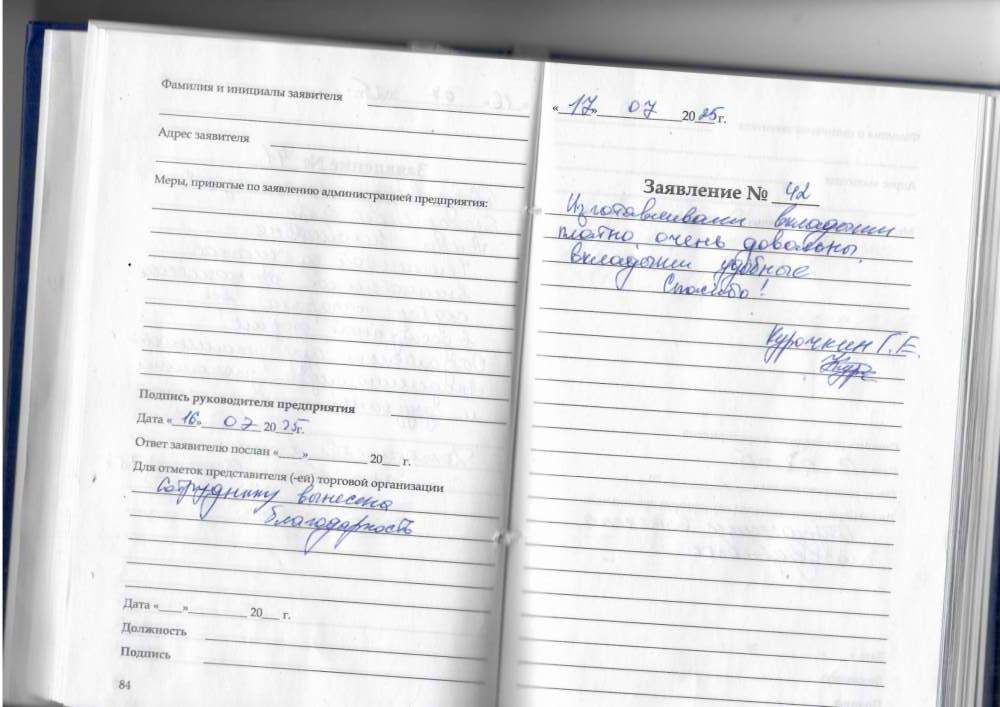 Фамилия и инициалы заявителя
Адрес заявителя
Меры, принятые по заявлению администрацией предприятия:
Подпись руководителя предприятия
Дата «16» 07 2025г.
Ответ заявителю послан «___»__________ 20___ г.
Для отметок представителя (-ей) торговой организации
Сотруднику вынесена
благодарность
Дата «____»__________ 20___ г.
Должность
Подпись
84
«17» 07 2025г.
Заявление № 42
Изготавливали вкладыши
платно, очень довольны,
вкладыши удобные
Спасибо!
Курочкин Г.Е.